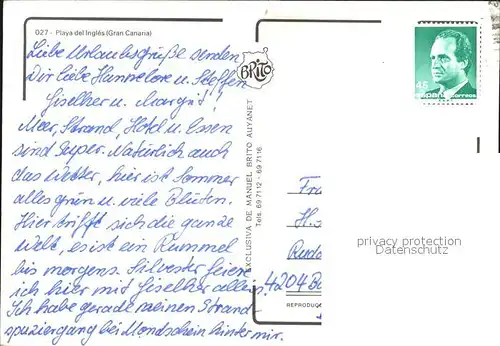 027 - Playa del Inglés (Gran Canaria)
Liebe Urlaubsgrüße senden
Dir liebe Hannelore u. Steffen
Giselher u. Margut!
Meer, Strand, Hotel u. Essen
sind super. Natürlich auch
das Wetter, hier ist Sommer
alles grün u. viele Blüten.
Hier trifft sich die ganze
Welt, es ist ein Rummel
bis morgens. Silvester feiern
ich hier mit Giselher allein.
Ich habe gerade meinen Strand-
spaziergang bei Mondschein hinter mir.
BRITO
EXCLUSIVA DE MANUEL BRITO AUYANET
Tels. 69 7112 - 69 7116
45
España correos
Fra
H.
Rudo
4204 Bo
privacy protection
Datenschutz
REPRODUC